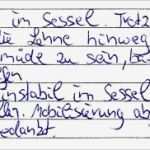 im Sessel. Trotz
die Lehne hinweg
müde zu sein, be
instabil im Sessel
Mobilisierung ab